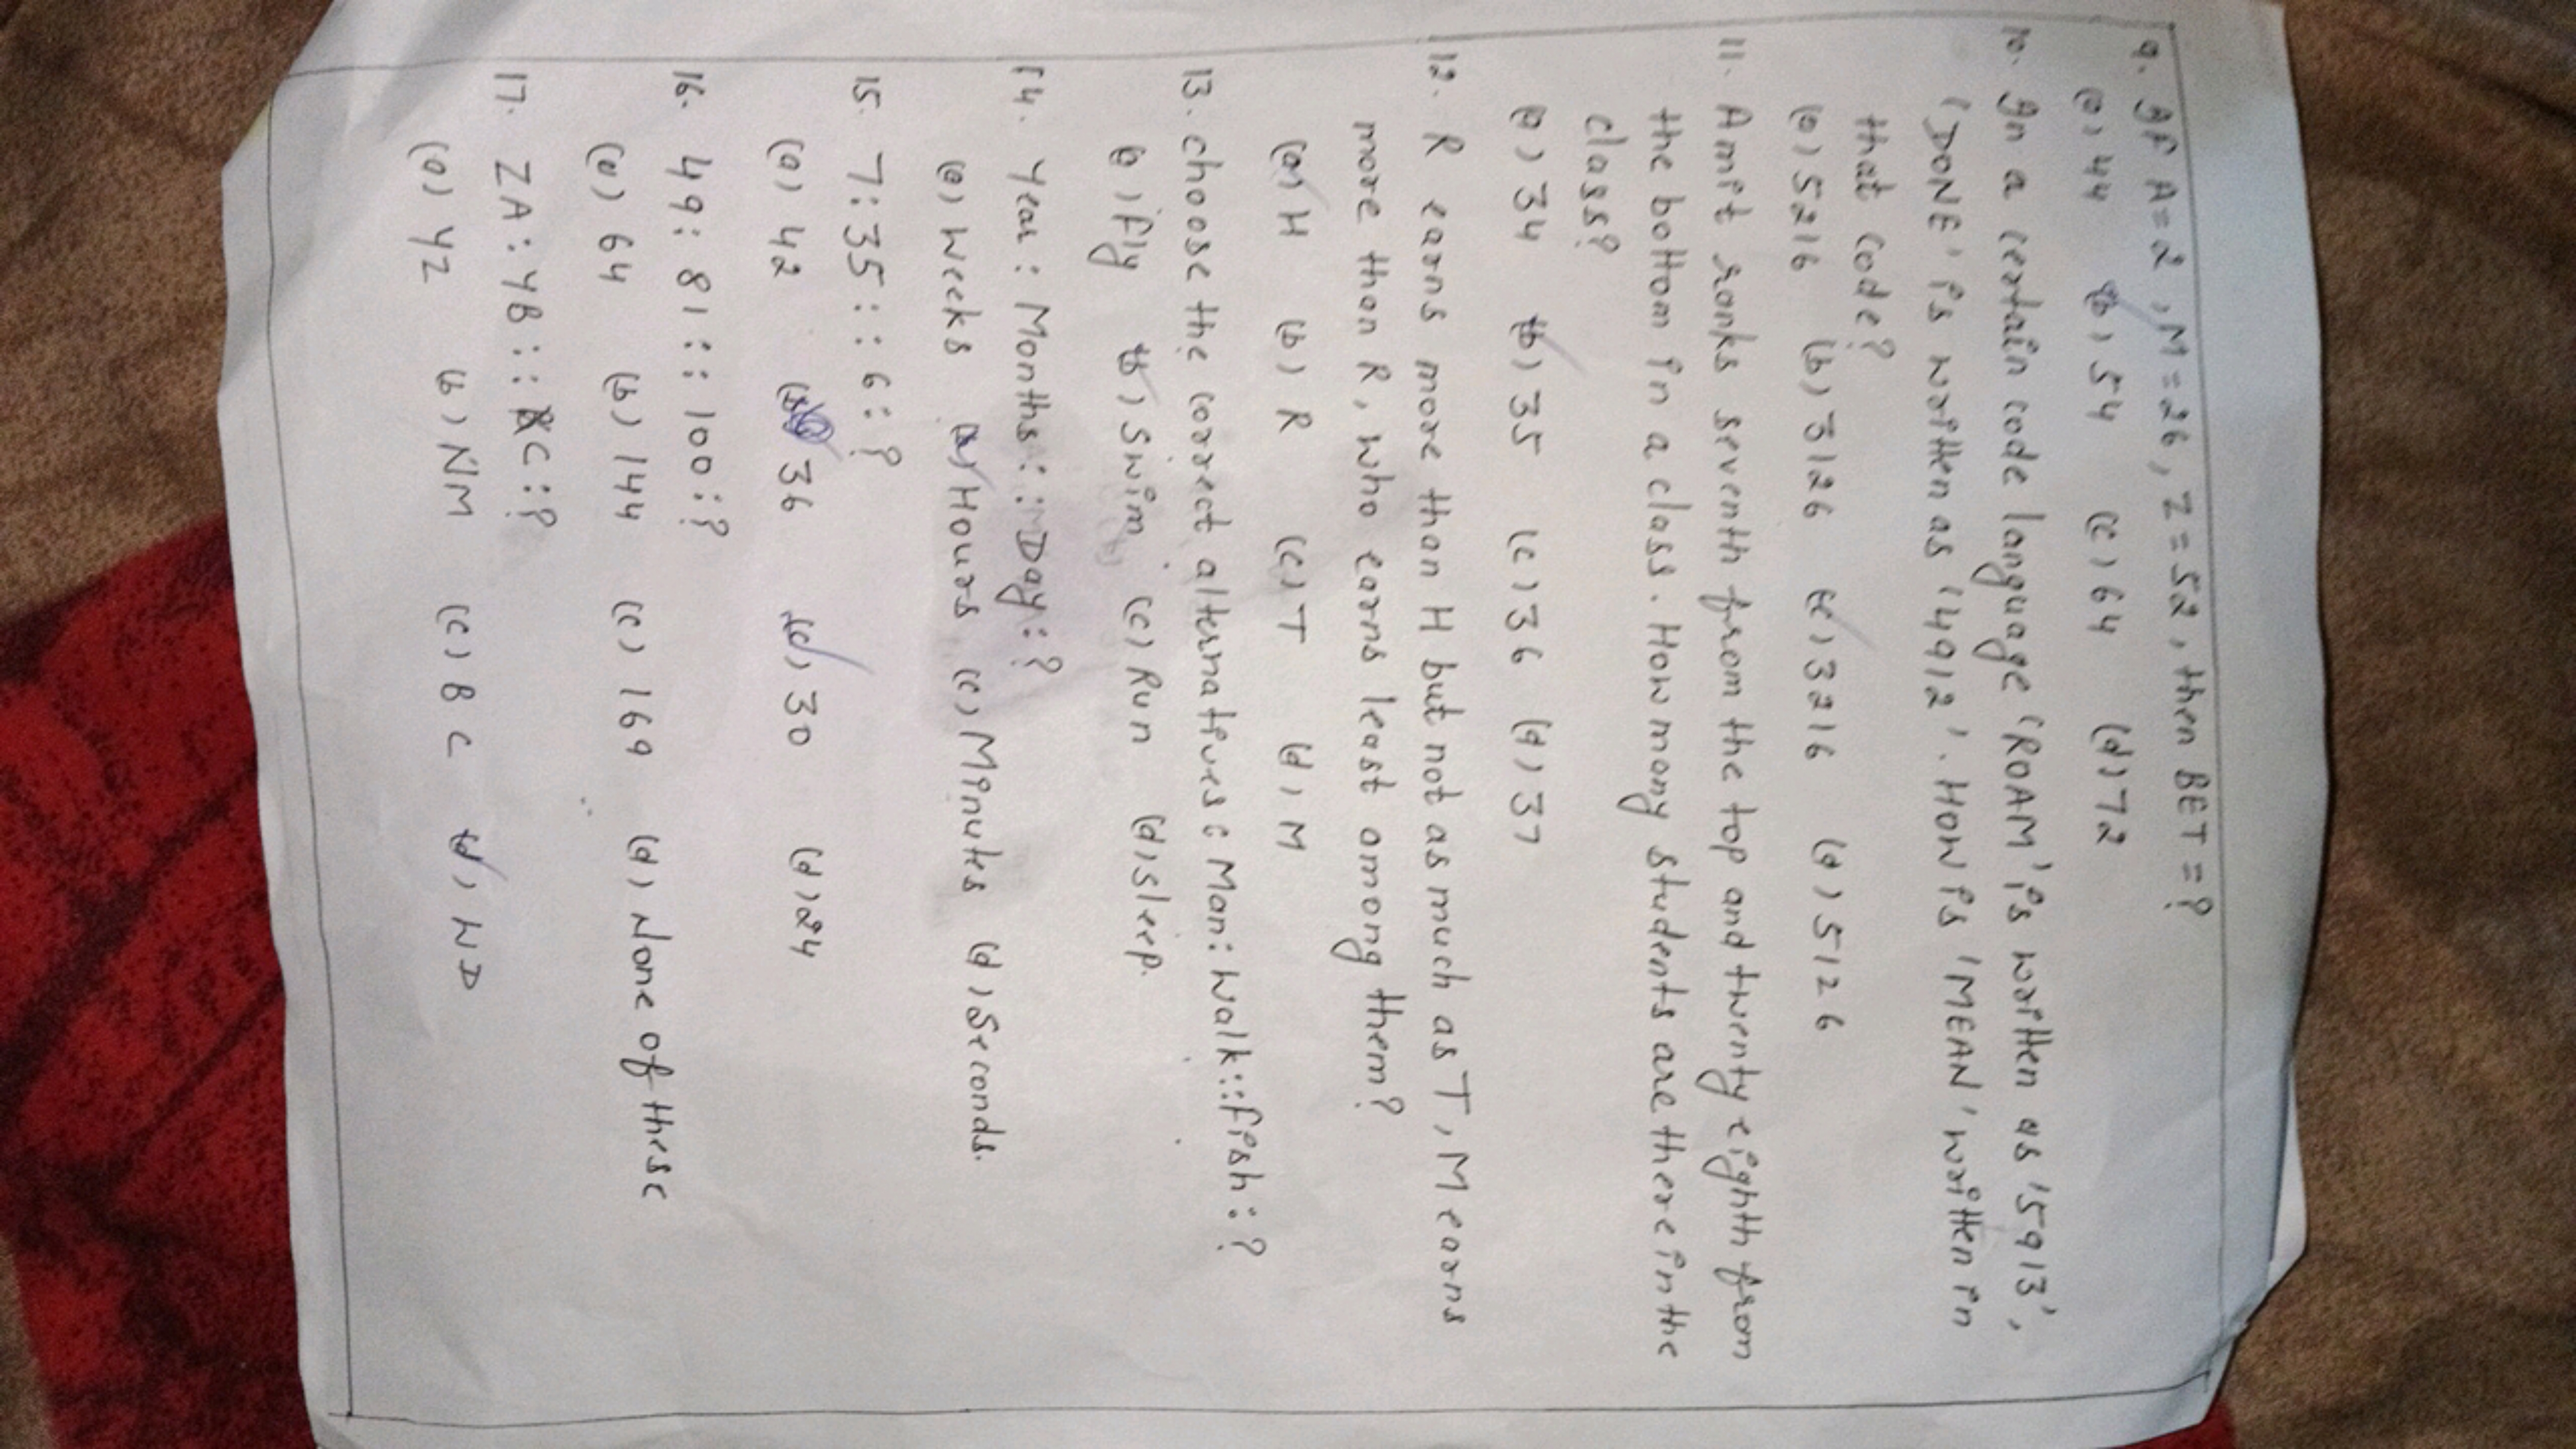 9. If A=2, M=26, Z=52, then BET=?
(a) 44 (b) 54 (c) 64 (d) 72
10. In a certain code language 'ROAM' is written as '5913',
'DONE' is written as '4912'. HOW is 'MEAN' written in
that code?
(a) 5216 (b) 3126 (c) 3216 (d) 5126
11. Amit ranks seventh from the top and twenty eighth from
the bottom in a class. How many students are there in the
class?
(a) 34 (b) 35 (c) 36 (d) 37
12. R earns more than H but not as much as T, M earns
more than R, who earns least among them?
(a) H (b) R (c) T (d) M
13. choose the correct alternatives: Man: Walk:: fish: ?
(a) fly (b) Swim (c) Run (d) sleep.
14. Year : Months :: Day : ?
(a) Weeks (b) Hours (c) Minutes (d) Seconds.
15. 7:35 :: 6:?
(a) 42 (b) 36 (c) 30 (d) 24
16. 49: 81 :: 100:?
(a) 64 (b) 144 (c) 169 (d) None of these
17. ZA: YB :: XC:?
(a) YZ (b) NM (c) BC (d) WD